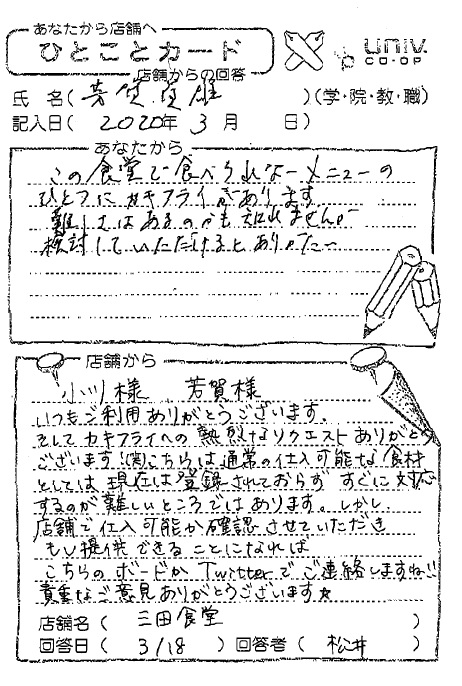 あなたから店舗へ
ひとことカード
店舗からの回答
univ.
CO-OP
氏 名( 芳賀 雄 )(学・院・教・職)
記入日( 2020年 3月 日)
あなたから
この食堂で食べられないメニューの
ひとつにカキフライがあります
難しくはあるのかも知れませんが
検討していただけるとありがたい
店舗から
小川様 芳賀様
いつもご利用ありがとうございます。
そしてカキフライへの熱烈なリクエストありがとう
ございます!(笑)こちらは通常の仕入可能な食材
としては現在は登録されておらず すぐに対応
するのが難しいところではあります。しかし、
店舗で仕入可能か確認させていただき
もし提供できることになれば
こちらのボードかTwitterでご連絡しますね!!
貴重なご意見ありがとうございます☆
店舗名( 三田食堂 )
回答日( 3/18 )回答者( 松井 )